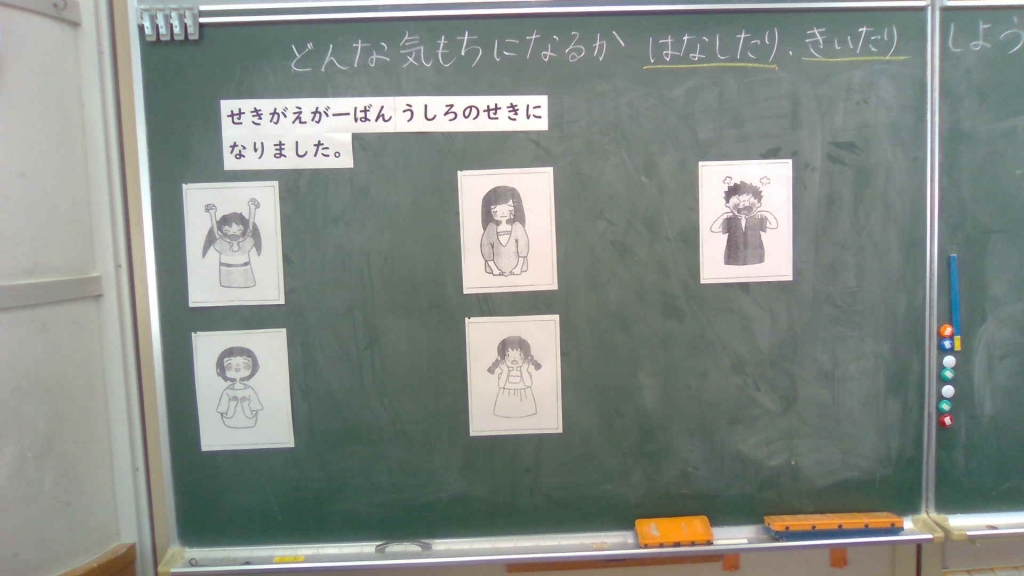 どんな気もちになるか はなしたり、きいたり しよう
せきがえが一ばん うしろのせきに
なりました。